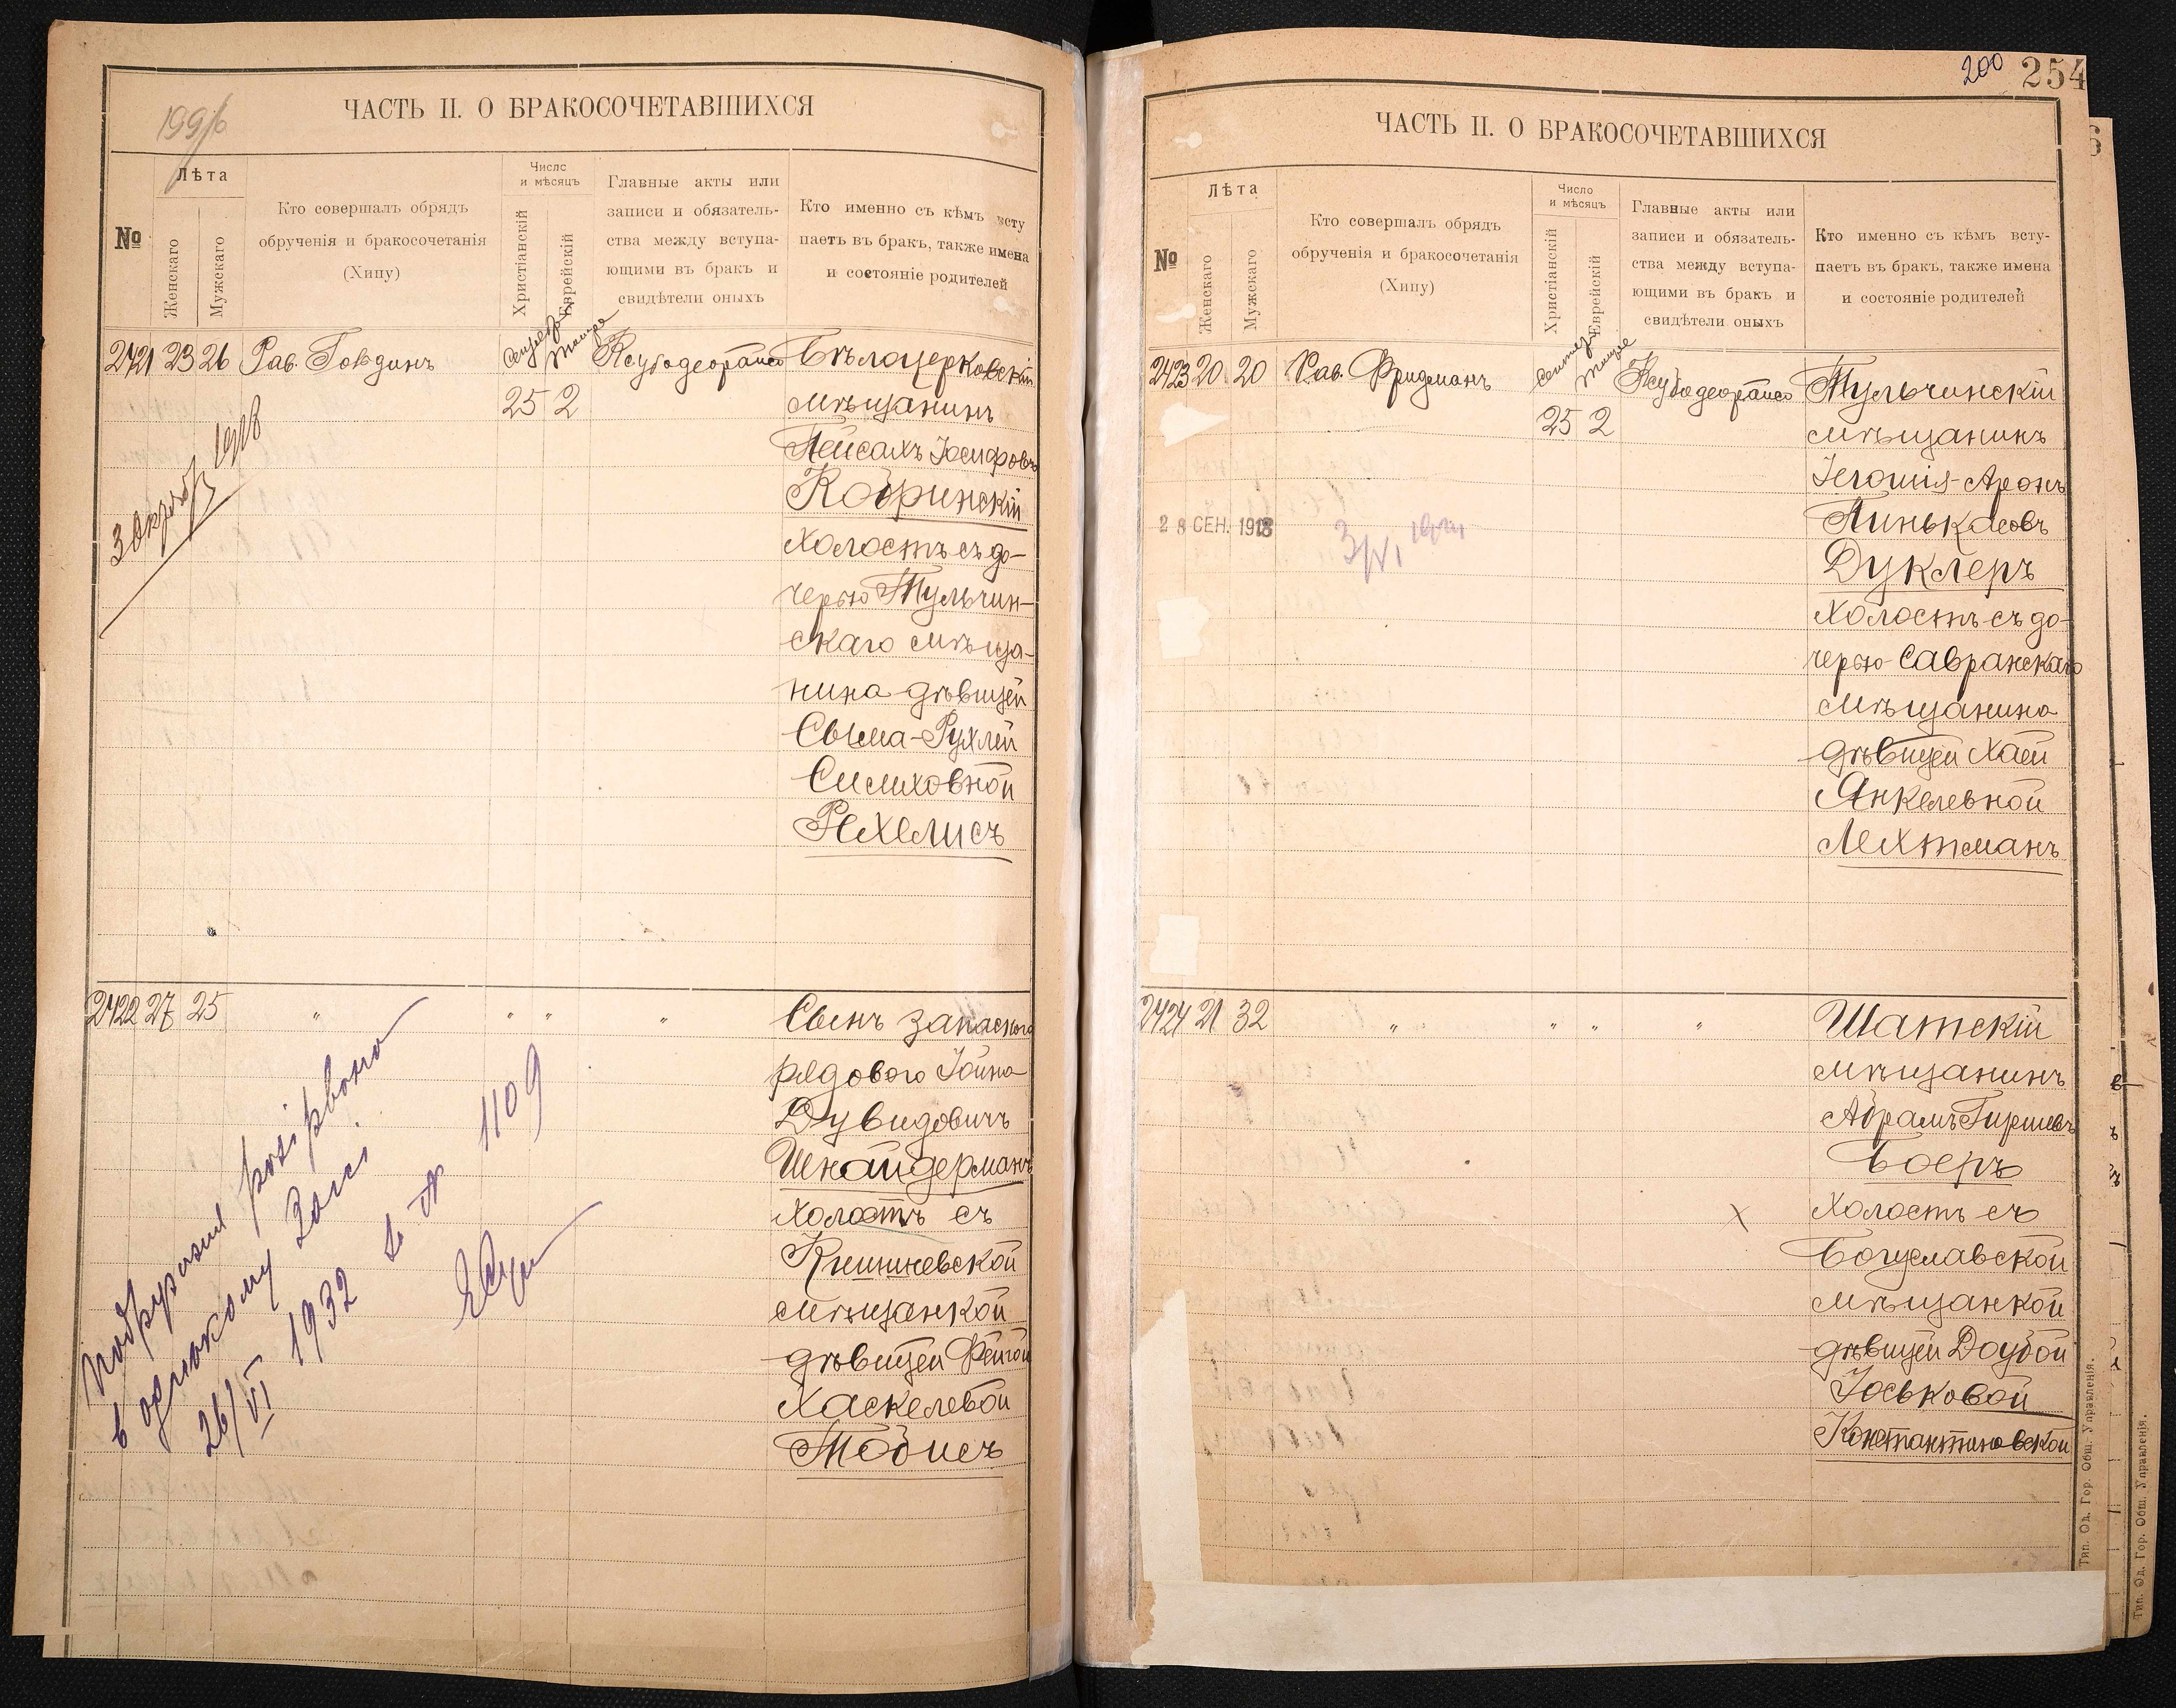 199/б
ЧАСТЬ II. О БРАКОСОЧЕТАВШИХСЯ
№
Лѣта
Женскаго
Мужскаго
Кто совершалъ обрядъ
обрученія и бракосочетанія
(Хипу)
Число
и мѣсяцъ
Христіанскій
Еврейскій
Главные акты или
записи и обязатель-
ства между вступа-
ющими въ бракъ и
свидѣтели оныхъ
Кто именно съ кѣмъ всту
паетъ въ бракъ, также имена
и состояніе родителей
2421 23 26 Рав.
25 2
Бѣлоцерковскій
мѣщанинъ
Пейсахъ Іосифовъ
Кобринскій
холостъ съ до-
черью Тульчин-
скаго мѣща-
нина дѣвицей
Сыма-Рухлей
Симховной
Рехелисъ
1918
2422 27 25 " " " "
Сынъ запаснаго
рядового Іойна
Дувидовичъ
Шнайдерманъ
холостъ съ
Кишиневской
мѣщанкой
дѣвицей Фейгой
Хаскелевой
Тобисъ
26/VI 1932 № 1109
200 254
ЧАСТЬ II. О БРАКОСОЧЕТАВШИХСЯ
№
Лѣта
Женскаго
Мужскаго
Кто совершалъ обрядъ
обрученія и бракосочетанія
(Хипу)
Число
и мѣсяцъ
Христіанскій
Еврейскій
Главные акты или
записи и обязатель-
ства между вступа-
ющими въ бракъ и
свидѣтели оныхъ
Кто именно съ кѣмъ всту-
паетъ въ бракъ, также имена
и состояніе родителей
2423 20 20 Рав. Фридманъ
25 2
Тульчинскій
мѣщанинъ
Іегошія-Аронъ
Пинькасовъ
Дуклеръ
холостъ съ до-
черью Савранскаго
мѣщанина
дѣвицей Хаей
Янкелевной
Лехтманъ
28 СЕН. 1918
2424 21 32 " " " "
Шатскій
мѣщанинъ
Абрамъ Гиршевъ
Боеръ
холостъ съ
Богуславской
мѣщанкой
дѣвицей Доубой
Іоськовой
Константиновской
Тип. Од. Гор. Общ. Управленія.
Тип. Од. Гор. Общ. Управленія.